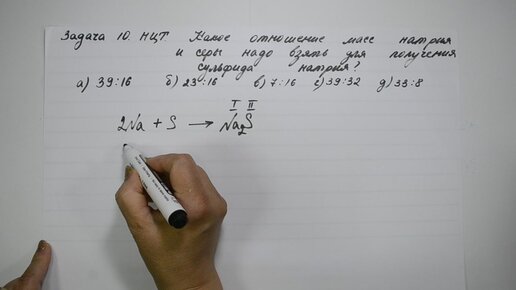 Задача 10. НЦТ Какое отношение масс натрия
и серы надо взять для получения
сульфида натрия?
а) 39:16 б) 23:16 в) 7:16 с) 39:32 д) 33:8
I II
2Na + S → Na2S